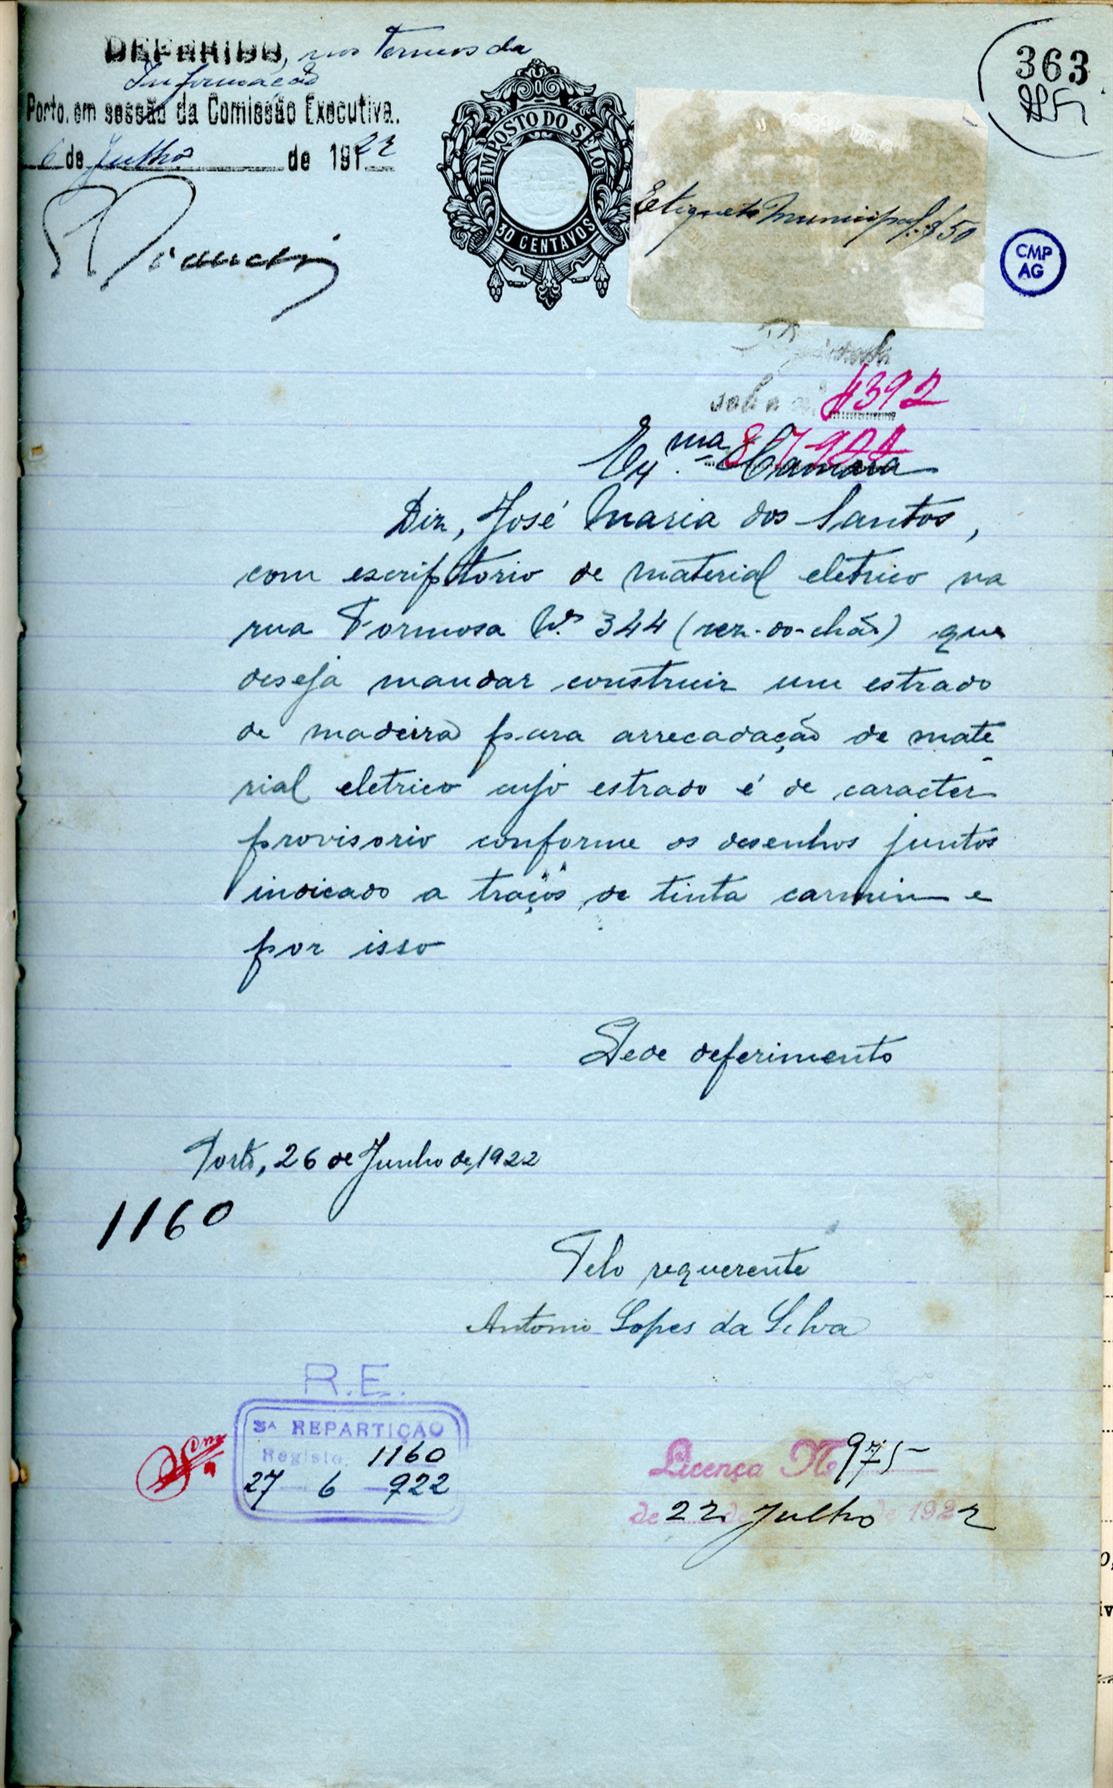 DEFERIDO, nos termos da
informação
Porto, em sessão da Comissão Executiva.
6 de Julho de 1922
363
IMPOSTO DO SELO
30 CENTAVOS
Etiqueta Municipal $50
CMP
AG
sob o nº 4392
8 7 922
Exma Camara
Diz, José Maria dos Santos,
com escriptorio de material eletrico na
rua Formosa Nº 344 (rez-do-chão) que
deseja mandar construir um estrado
de madeira para arrecadação de mate
rial eletrico cujo estrado é de caracter
provisorio conforme os desenhos juntos
indicado a traços de tinta carmin e
por isso
Pede deferimento
Porto, 26 de Junho de 1922
1160
Pelo requerente
Antonio Lopes da Silva
R.E.
3ª REPARTIÇÃO
Registo 1160
27 6 922
Licença Nº 975
de 22 de Julho de 1922